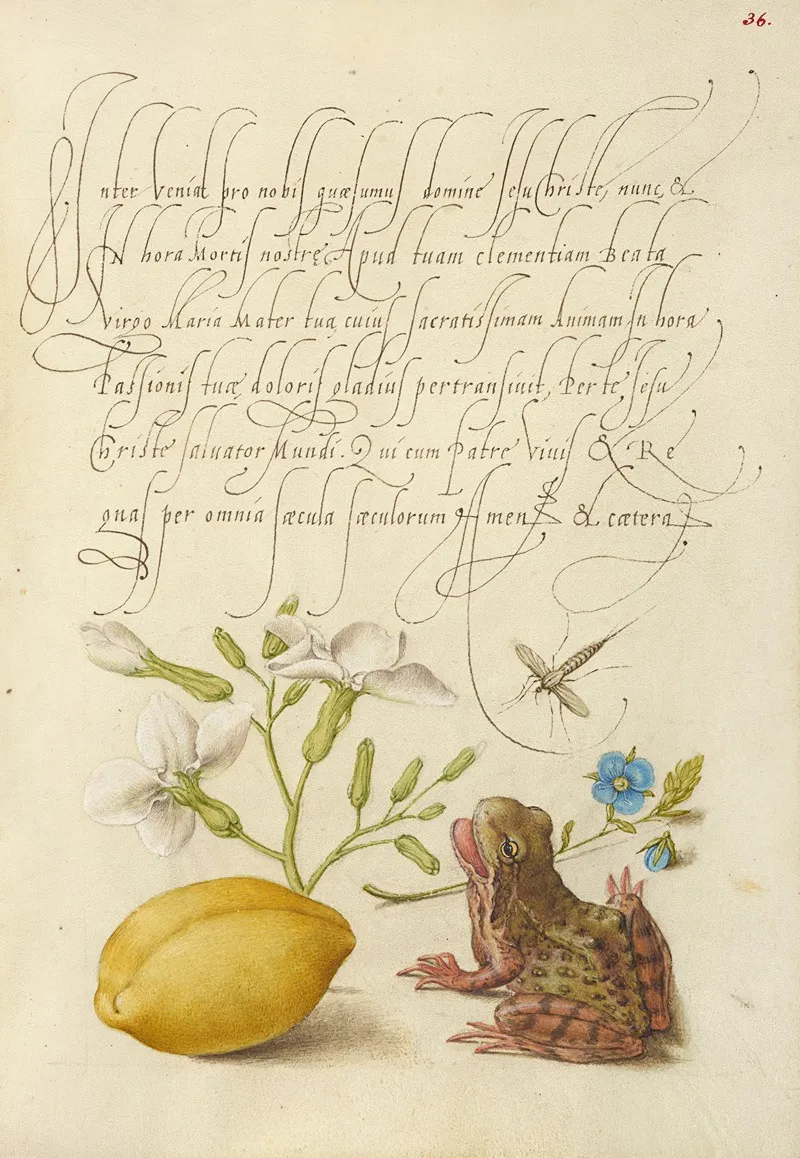 36.
Inter veniat pro nobis quæsumus domine Jesu Christe, nunc, &
IN hora Mortis nostrę Apud tuam clementiam Beata
virgo Maria Mater tua, cuius sacratissimam Animam In hora
Passionis tuæ doloris gladius pertransivit, Per te, Jesu
Christe salvator Mundi. Qui cum Patre Vivis & Re
gnas per omnia sæcula sæculorum Amen & cætera